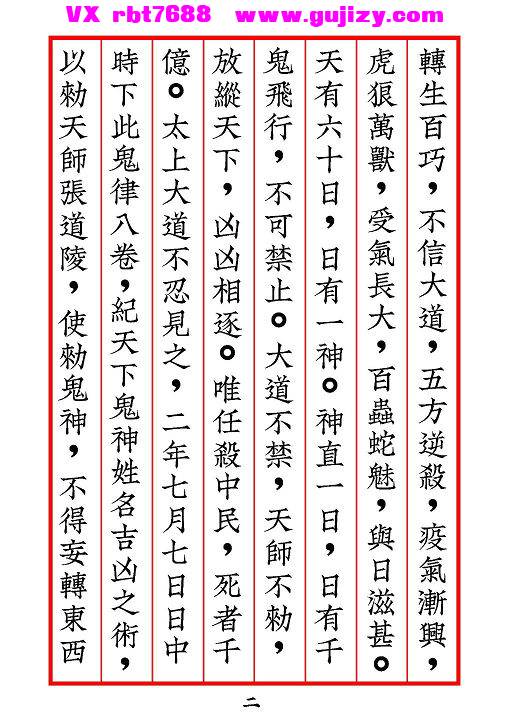 VX rbt7688 www.gujizy.com
轉生百巧，不信大道，五方逆殺，疫氣漸興，
虎狼萬獸，受氣長大，百蟲蛇魅，與日滋甚。
天有六十日，日有一神。神直一日，日有千
鬼飛行，不可禁止。大道不禁，天師不勑，
放縱天下，凶凶相逐。唯任殺中民，死者千
億。太上大道不忍見之，二年七月七日日中
時下此鬼律八卷，紀天下鬼神姓名吉凶之術，
以勑天師張道陵，使勑鬼神，不得妄轉東西
二